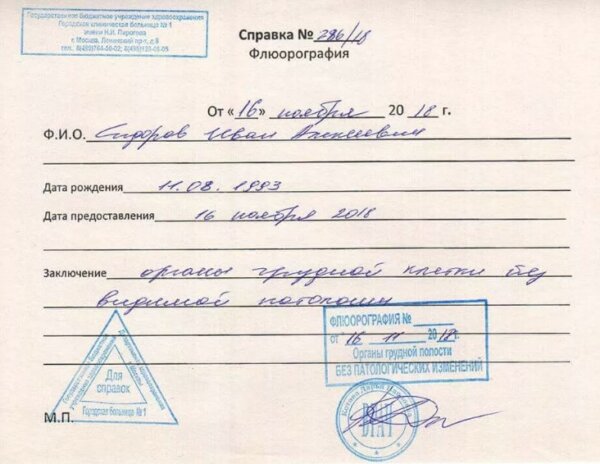 Государственное бюджетное учреждение здравоохранения
Городская клиническая больница № 1
имени Н.И. Пирогова
г. Москва, Ленинский пр-т, д.8
Справка № 286/18
Флюорография
От «16» ноября 20 18 г.
Ф.И.О. Сидоров Иван Алексеевич
Дата рождения 11.08.1993
Дата предоставления 16 ноября 2018
Заключение органы грудной клетки без
видимой патологии
ФЛЮОРОГРАФИЯ №
от 16 11 2018г.
Органы грудной полости
БЕЗ ПАТОЛОГИЧЕСКИХ ИЗМЕНЕНИЙ
Для
справок
Городская больница №1
М.П.
ВРАЧ